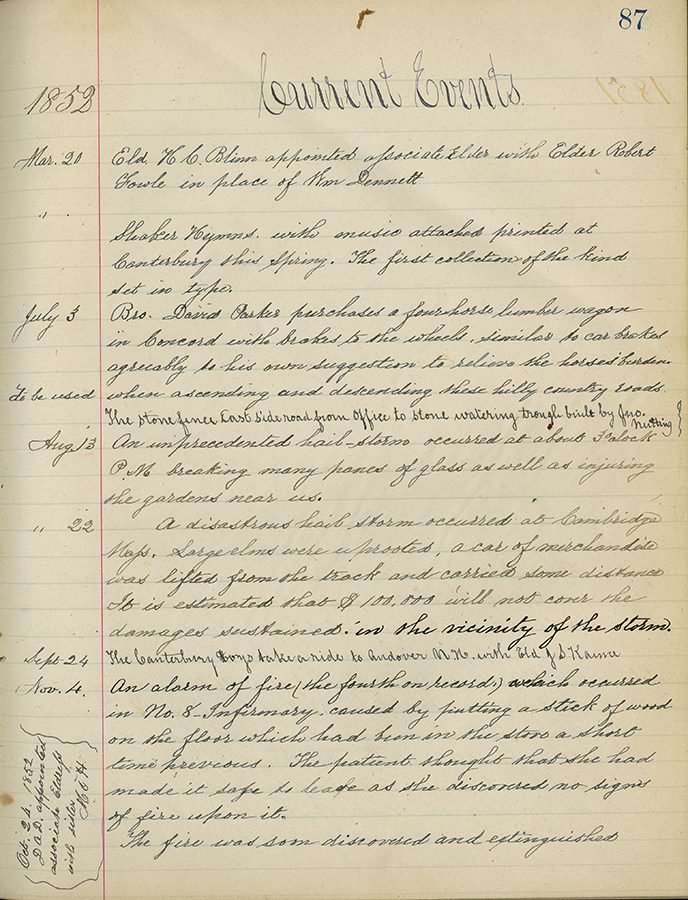 87
Current Events
1852
Mar. 20 Eld. H. C. Blinn appointed associate Elder with Elder Robert
Fowle in place of Wm Dennett
"
Shaker Hymns. with music attached printed at
Canterbury this Spring. The first collection of the kind
set in type.
July 3 Bro. David Parker purchases a four horse lumber wagon
in Concord with brakes to the wheels, similar to car brakes
agreeably to his own suggestion to relieve the horses' burden
To be used when ascending and descending these hilly country roads.
The stone fence East side road from Office to Stone watering trough built by Jno.
Nutting
Aug 13 An unprecedented hail-storm occurred at about 3 o'clock
P.M. breaking many panes of glass as well as injuring
the gardens near us.
" 22 A disastrous hail storm occurred at Cambridge
Mass. Large elms were uprooted, a car of merchandise
was lifted from the track and carried some distance
It is estimated that $100,000 will not cover the
damages sustained. in the vicinity of the storm.
Sept 24 The Canterbury Boys take a ride to Andover N.H. with Eld J S Kaime
Nov. 4. An alarm of fire, (the fourth on record,) which occurred
in No. 8. Infirmary. caused by putting a stick of wood
on the floor which had been in the stove a short
time previous. The patient thought that she had
made it safe to leave as she discovered no signs
of fire upon it.
The fire was soon discovered and extinguished
Oct. 1852
D A D. appointed
associate Eldress
with sister